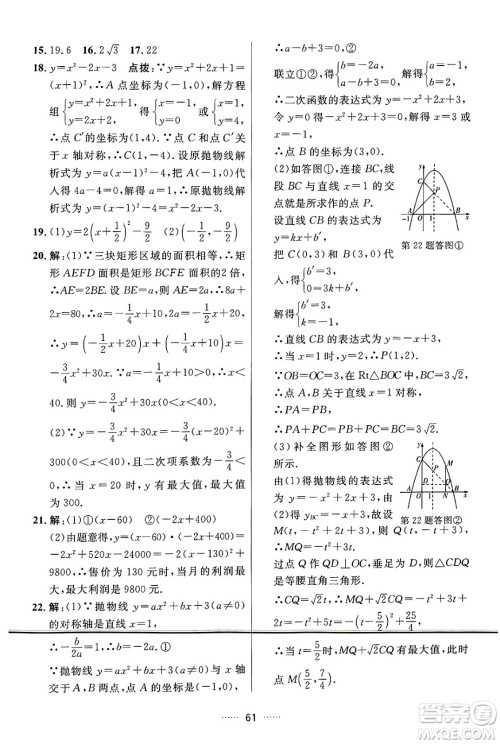 15. 19.6　16. 2√3　17. 22
18. y=x²-2x-3　点拨: y=x²+2x+1=
(x+1)²,∴A 点坐标为(-1,0),解方程
组{y=x²+2x+1, y=2x+2, 得{x=-1, y=0 或{x=1, y=4,
∴点 C′的坐标为(1,4).∵点 C 和点 C′
关于 x 轴对称,∴C(1,-4).设原抛物线解
析式为 y=a(x-1)²-4,把 A(-1,0)的坐标
代入得 4a-4=0,解得 a=1,∴原抛物线解
析式为 y=(x-1)²-4=x²-2x-3.
19. (1)y=2(x+1/2)²-9/2　(2)(-1/2,-9/2)
20. 解:(1)∵三块矩形区域的面积相等,∴矩
形 AEFD 面积是矩形 BCFE 面积的 2 倍,
∴AE=2BE.设 BE=a,则 AE=2a,∴8a+
2x=80,∴a=-1/4x+10,2a=-1/2x+20,
∴y=(-1/4x+10)x+(-1/2x+20)x=
-3/4x²+30x.∵a=-1/4x+10>0,∴x<
40.则 y=-3/4x²+30x(0<x<40).
(2)∵y=-3/4x²+30x=-3/4(x-20)²+
300(0<x<40),且二次项系数为-3/4<
0,∴当 x=20 时,y 有最大值,最大值
为 300.
21. 解:(1)①(x-60)　②(-2x+400)
(2)由题意得,y=(x-60)·(-2x+400)=
-2x²+520x-24000=-2(x-130)²+
9800,∴售价为 130 元时,当月的利润最
大,最大利润是 9800 元.
22. 解:(1)∵抛物线 y=ax²+bx+3(a≠0)
的对称轴是直线 x=1,
∴-b/2a=1,∴b=-2a.①
∵抛物线 y=ax²+bx+3(a≠0)与 x 轴
交于 A,B 两点,点 A 的坐标为(-1,0),
∴a-b+3=0.②
联立①②得{b=-2a, a-b+3=0,
解得{a=-1, b=2.
∴二次函数的表达式为 y=-x²+2x+3.
令 0=-x²+2x+3,
解得 x=3 或 x=-1,
∴点 B 的坐标为(3,0).
(2)如答图①,连接 BC,线
段BC 与直线 x=1 的交
点就是所求作的点 P.
设直线 CB 的表达式为
y=kx+b′,
第 22 题答图①
把 C(0,3)和 B(3,0)的坐标代入,
得{b′=3, 0=3k+b′,
解得{b′=3, k=-1.
∴直线 CB 的表达式为 y=-x+3.
∴当 x=1 时,y=2,∴P(1,2).
∵OB=OC=3,在 Rt△BOC 中,BC=3√2.
∵点 A,B 关于直线 x=1 对称,
∴PA=PB,
∴PA+PC=PB+PC=BC=3√2.
(3) 补全图形如答图②
所示.
由(1)得抛物线的表达式
为 y=-x²+2x+3,由(2)
得直线 y_BC=-x+3,故设
第 22 题答图②
M(t,-t²+2t+3),则 Q(t,-t+3),
∴MQ=-t²+3t.
过点 Q 作 QD⊥OC,垂足为 D,则△CDQ
是等腰直角三角形.
∴CQ=√2t,∴MQ+√2CQ=-t²+3t+
2t=-t²+5t=-(t-5/2)²+25/4,
∴当 t=5/2时,MQ+√2CQ有最大值,此时
点 M(5/2,7/4).
61